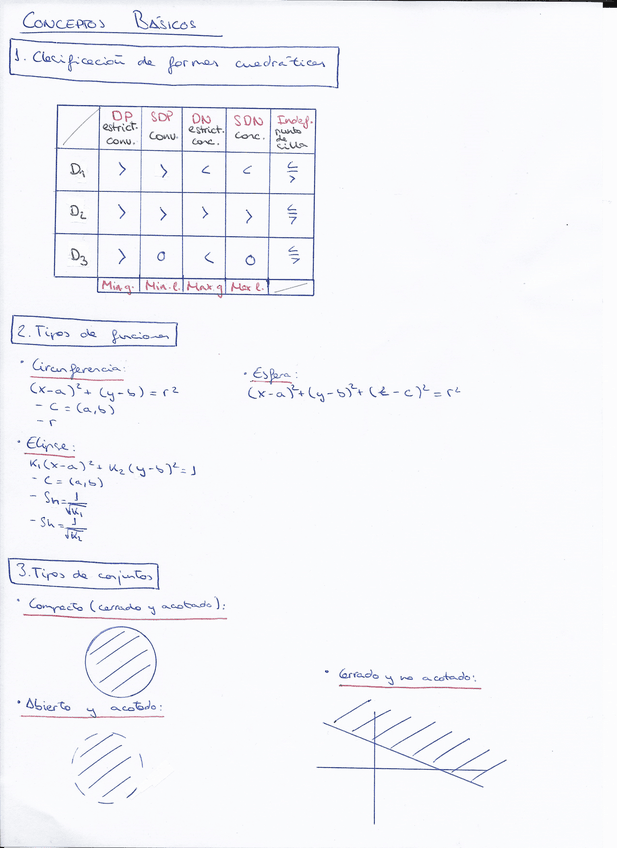 CONCEPTOS BÁSICOS
1. Clasificación de formas cuadráticas
DP SDP DN SDN Indef.
estrict. conv. conv. estrict. conc. conc. punto de silla
D1 > > < < ≤ >
D2 > > > > ≤ >
D3 > 0 < 0 ≤ >
Min.g. Min.l. Max.g Max l.
2. Tipos de funciones
· Circunferencia:
(x-a)² + (y-b) = r²
- C = (a,b)
- r
· Esfera:
(x-a)² + (y-b)² + (z-c)² = r²
· Elipse:
K1(x-a)² + K2(y-b)² = 1
- C = (a,b)
- Sh = 1/√K1
- Sh = 1/√K2
3. Tipos de conjuntos
· Compacto (cerrado y acotado):
· Cerrado y no acotado:
· Abierto y acotado: